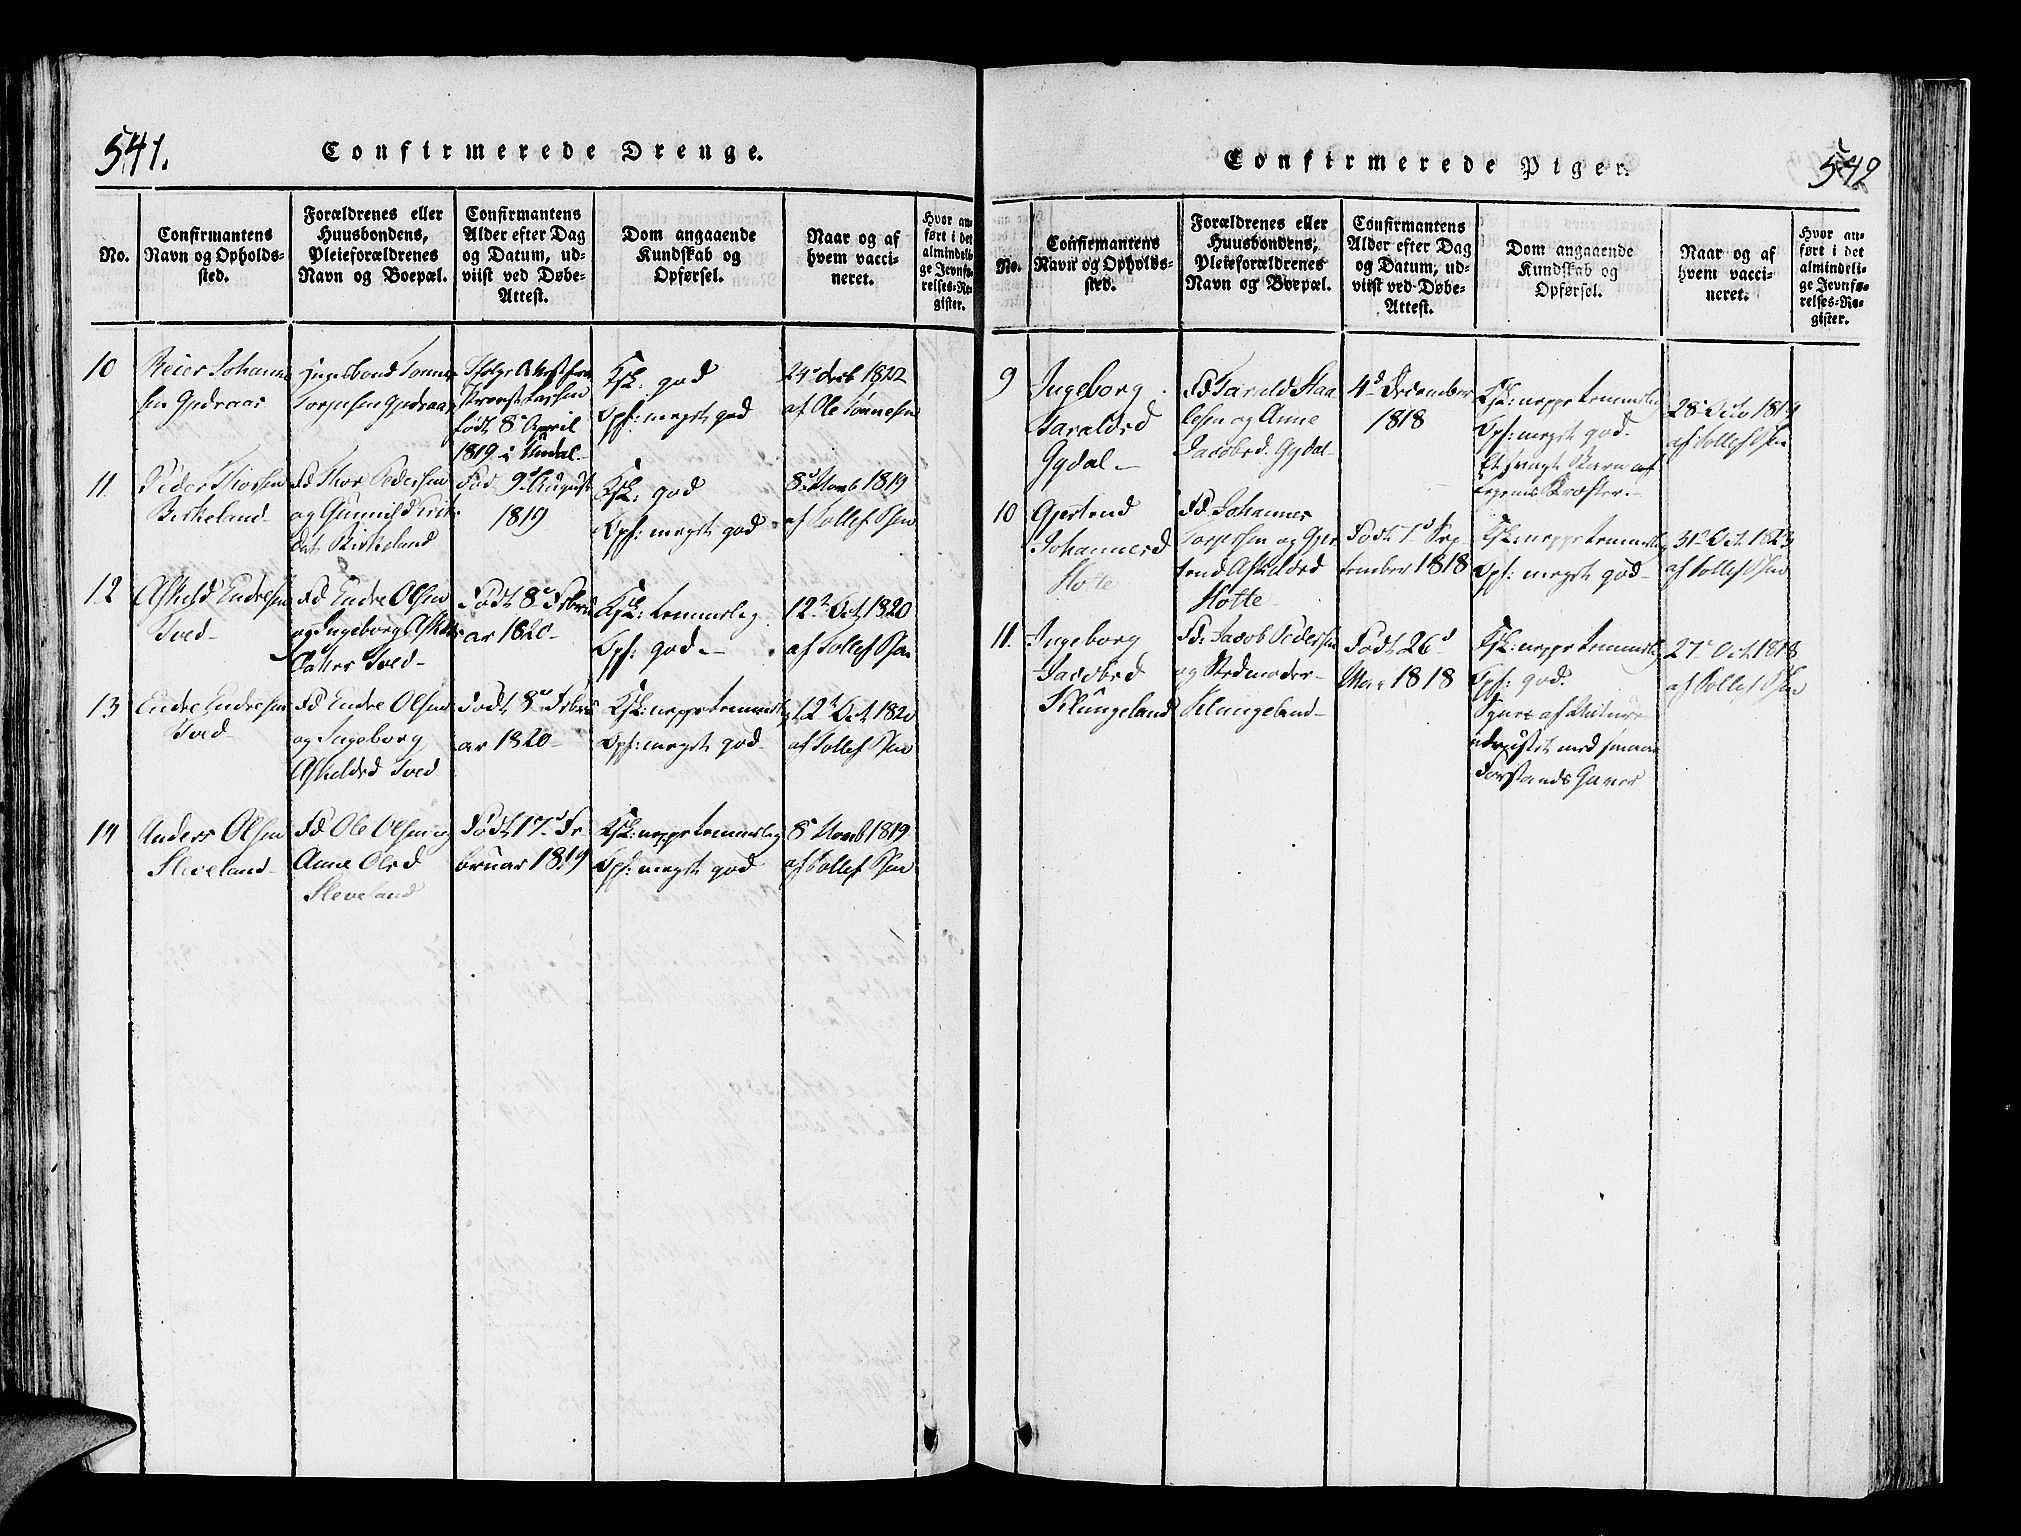 541.
Confirmerede Drenge.
No.
Confirmantens
Navn og Opholds-
sted.
Forældrenes eller
Huusbondens,
Pleieforældrenes
Navn og Boepæl.
Confirmantens
Alder efter Dag
og Datum, ud-
viist ved Døbe-
Attest.
Dom angaaende
Kundskab og
Opførsel.
Naar og af
hvem vacci-
neret.
Hvor an-
ført i det
almindeli-
ge Jevnfø-
relses-Re-
gister.
10
Reier Johanne
sen Gydraas
Huusbond Tønnes
Torgesen Gydraas
Ifølge Attest fra
Provst Lassen
født 8de April
1819 i Undal
Ksk: god
Opf: meget god
24de Decb 1822
af Ole Tønnesen
11
Peder Thorsen
Birkeland
Fd Thor Pedersen
og Gunnild
dat Birkeland
Fød 9d August
1819
Ksk: god
Opf: meget god
8d Novb 1819
af Tollef Osen
12
Askild Endresen
Tved
Fd Endre Olsen
og Ingeborg Askilds
datter Tved
Født 8d Febru
ar 1820
Ksk: temmelig
Opf: god
12te Oct 1820
af Tollef Osen
13
Endre Endresen
Tved
Fd Endre Olsen
og Ingeborg
Askildsd Tved
Født 8d Febru
ar 1820
Ksk: neppe temmelig
Opf: meget god
12te Oct 1820
af Tollef Osen
14
Anders Olsen
Sleveland
Fd Ole Olsen og
Anne Olsd
Sleveland
Født 17d Fe
bruar 1819
Ksk: neppe temmelig
Opf: meget god
8d Novb 1819
af Tollef Osen
542
Confirmerede Piger.
No.
Confirmantens
Navn og Opholds-
sted.
Forældrenes eller
Huusbondens,
Pleieforældrenes
Navn og Boepæl.
Confirmantens
Alder efter Dag
og Datum, ud-
viist ved Døbe-
Attest.
Dom angaaende
Kundskab og
Opførsel.
Naar og af
hvem vacci-
neret.
Hvor an-
ført i det
almindeli-
ge Jevnfø-
relses-Re-
gister.
9
Ingeborg
Taraldsd
Gydal
Fd Tarald Staa
lesen og Anne
Jacobsd. Gydal
4d December
1818
Ksk: neppe temmelig
Opf: meget god.
Et svagt Barn af
Legems Kræfter.
28d Octo 1819
af Tollef Osen
10
Gjertrud
Johannesd
Hotte
Fd Johannes
Torgersen og Gjer
trud Askildsd
Hotte
Født 7d Sep
tember 1818
Ksk: neppe temmelig
Opf: meget god
31d Oct. 1823
af Tollef Osen
11.
Ingeborg
Jacobsd
Klungeland
Fd. Jacob Pedersen
og Stedmoder
Klungeland
Født 26d
Mai 1818
Ksk: neppe temmelig
Opf: god.
Synes af Naturen
udrustet med smaae
Forstands Gaver
27d Oct 1818
af Tollef Osen